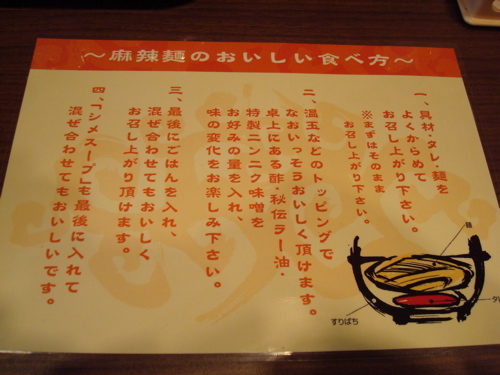 ～麻辣麺のおいしい食べ方～
一、具材・タレ・麺を
よくからめて
お召し上がり下さい。
※まずはそのまま
お召し上がり下さい。
二、温玉などのトッピングで
なおいっそうおいしく頂けます。
卓上にある酢・秘伝ラー油・
特製ニンニク味噌を
お好みの量を入れ、
味の変化をお楽しみ下さい。
三、最後にごはんを入れ、
混ぜ合わせてもおいしく
お召し上がり頂けます。
四、「シメスープ」も最後に入れて
混ぜ合わせてもおいしいです。
麺
タレ
すりばち